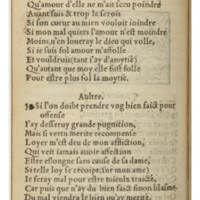 Qu'amour d'elle ne m'ait seu poindre
Auant suis & trop le serois
Si son cœur au mien vouloit ioindre
Si mon mal quiers l'amour n'est moindre
Moins n'en loueray le dieu qui volle,
Si ie suis fol amour m'affolle
Et vouldrois (tant i'ay d'amytié)
Qu'autant que moy elle fust folle
Pour estre plus fol la moytié.
Aultre.
Si l'on doibt prendre vng bien faict pour
offense
I'ay desseruy grande pugnition,
Mais si vertu merite recompense
Loyer m'est deu de mon affection,
Qui veit iamais amour affection
Estre eslongne sans cause de sa dame,
Si telle loy se reçoit, (sur mon ame)
Ie seray mal pour estre mieulx traicté,
Car puis que n'ay du bien faict sinon blasme
Du mal viendra le bien qu'ay merité.